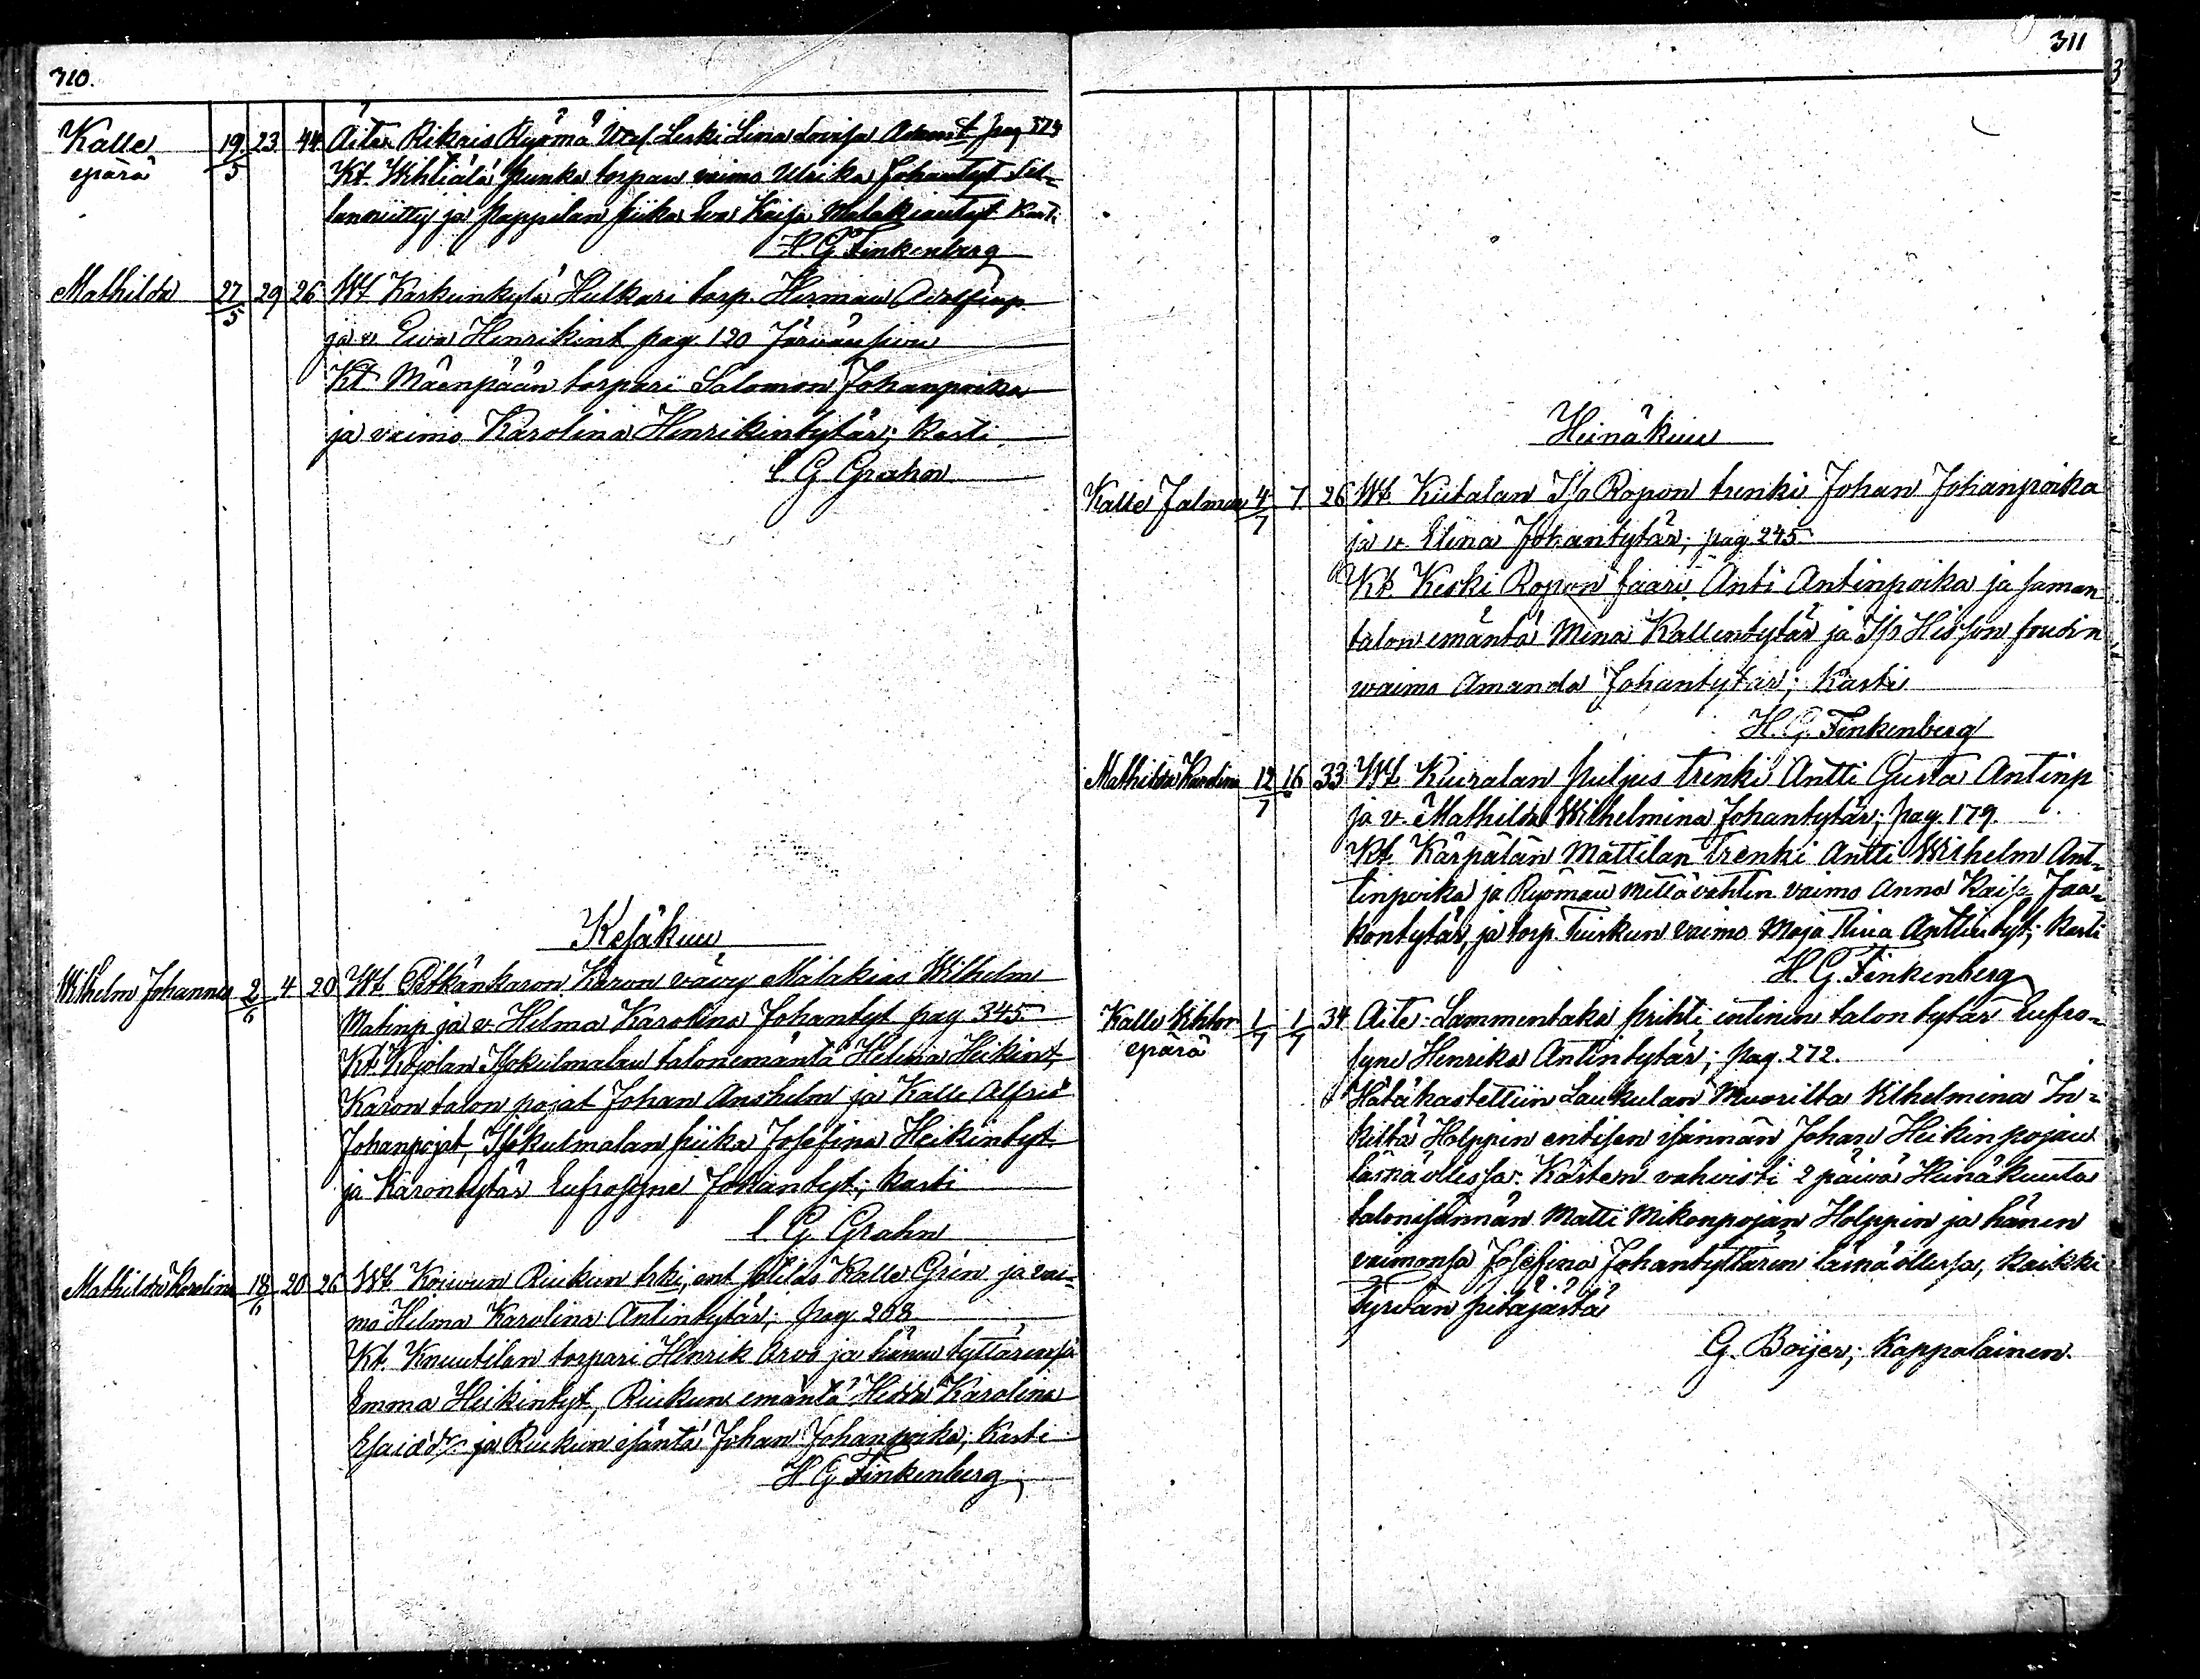 310.
Kalle 19/5 23 44 Äite: Rikais Ryömä Leski Lena Lovisa Adamst pag 324
epärä Kt. Wihtiälä Punka torpan vaimo Ulrika Johantyt Sil=
lanniitty ja Pappilan piika Eva Kaisa Malakiantyt Kasti
H G Finkenberg
Mathilda 27/5 29 26 Wt Karkunkylä Hulkari torp. Herman Adolfinp.
ja v. Eva Henrikint pag. 120 Järvänsivu
Kt Mäenpään torpari Salomon Johanpoika
ja vaimo Karolina Henrikintytär; Kasti
C. G. Grahn
Kesäkuu
Wilhelm Johannes 2/6 4 20 Wt. Pitkänkaron Karon vävy Malakias Wilhelm
Matinp ja v. Helma Karolina Johantyt pag 345
Kt. Kojolan Isokulmalan talonemäntä Helena Heikint,
Karon talon pojat Johan Anshelm ja Kalle Alfred
Johanpojat, Isokulmalan piika Josefina Heikintyt
ja Karontytär Eufrosyne Johantyt; Kasti
C. G. Grahn
Mathilda Karolina 18/6 20 26 Wt Koivun Riukun trki, ent sotilas Kalle Grén ja vai=
mo Helma Karolina Antintytär; pag. 208
Kt. Knuutilan torpari Henrik Arvo ja hänen tyttärensä
Emma Heikintyt, Riukun emäntä Hedda Karolina
Esaidr ja Riukun isäntä Johan Johanpoika; Kasti
H G Finkenberg
311
Heinäkuu
Kalle Jalmar 4/7 7 26 Wt. Kiitalan I/o Ropon trenki Johan Johanpoika
ja v. Elina Johantytär; pag. 245
Kt. Keski Ropon faari Anti Antinpoika ja saman
talon emäntä Mina Kallentytär ja Hisson
waimo Amanda Johantytär; Kasti
H. G. Finkenberg
Mathilda Karolina 12/7 16 33 Wt. Kiuralan Puljus trenki Antti Gusta Antinp
ja v. Mathilda Wilhelmina Johantytär; pag. 179.
Kt. Kärpälän Mattilan trenki Antti Wilhelm Ant=
tinpoika ja Ryömän mettävahtin vaimo Anna Kaisa Jaa=
kontytär, ja torp. Tuiskun vaimo Maja Stiina Anttintyt; Kasti
H. G. Finkenberg
Kalle Wihtor 1/7 1/7 34 Äite: Lammentaka Prihti entinen talon tytär Eufro=
epärä syne Henrika Antintytär; pag. 272.
Hätäkastettiin Laukulan Muorilta Wilhelmina In=
kiltä Holppin entisen isännän Johan Heikin pojan
läsnä ollessa. Kasten vahvisti 2 päivä Heinäkuuta
talonisännän Matti Mikonpojan Holppin ja hänen
vaimonsa Josefina Johantyttären läsnä ollessa, kaikki
Tyrvään pitäjästä
G. Boijer; Kappalainen.